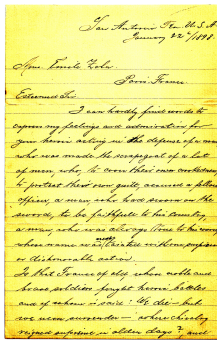 San Antonio Tex. U.S.A
January 22nd/1898.
Mons. Emile Zola.
Paris. France.
Esteemed Sir
I can hardly find words to
express my feelings and admiration for
your heroic acting in the defense of a man
who was made the scapegoat of a lot
of men, who, to cover their own crookedness
to protect their own guilt, accused a fellow
officer, a man who had sworn on the
sword, to be faithful to his country,
a man, who was always true to his
whose name was never tainted with
or dishonorable action.
Is that France of old where noble and
brave soldiers fought heroic battles
and of whom is said: We die - but
we never surrender - where chivalry
reigned supreme in olden days? and